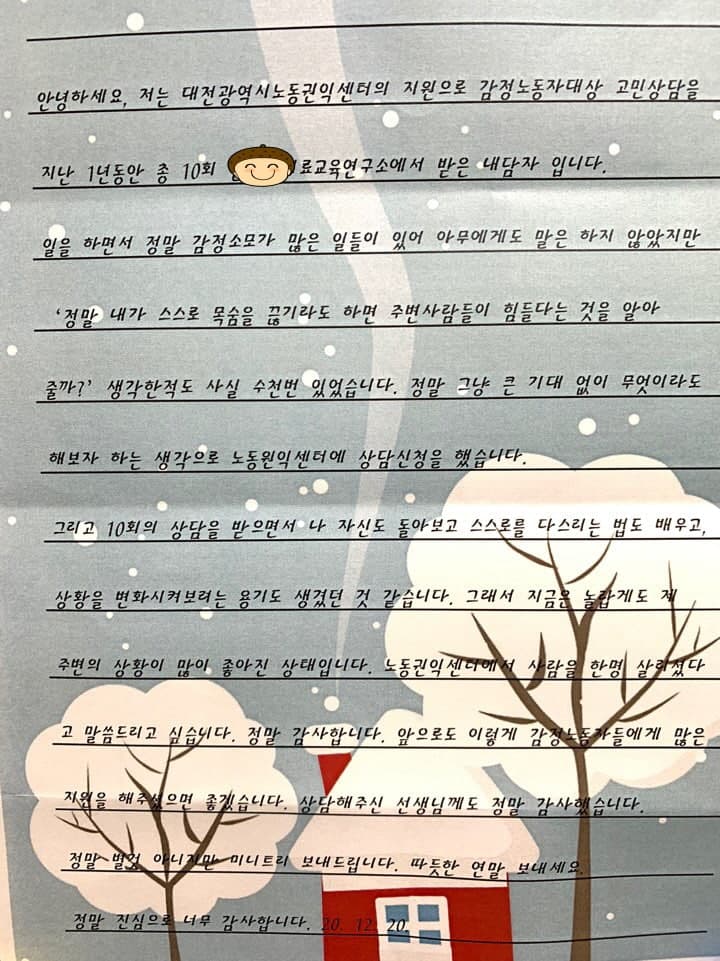 안녕하세요, 저는 대전광역시노동권익센터의 지원으로 감정노동자대상 고민상담을
지난 1년동안 총 10회 료교육연구소에서 받은 내담자 입니다.
일을 하면서 정말 감정소모가 많은 일들이 있어 아무에게도 말은 하지 않았지만
'정말 내가 스스로 목숨을 끊기라도 하면 주변사람들이 힘들다는 것을 알아
줄까?' 생각한적도 사실 수천번 있었습니다. 정말 그냥 큰 기대 없이 무엇이라도
해보자 하는 생각으로 노동원익센터에 상담신청을 했습니다.
그리고 10회의 상담을 받으면서 나 자신도 돌아보고 스스로를 다스리는 법도 배우고,
상황을 변화시켜보려는 용기도 생겼던 것 같습니다. 그래서 지금은 놀랍게도 제
주변의 상황이 많이 좋아진 상태입니다. 노동권익센터에서 사람을 한명 살리셨다
고 말씀드리고 싶습니다. 정말 감사합니다. 앞으로도 이렇게 감정노동자들에게 많은
지원을 해주셨으면 좋겠습니다. 상담해주신 선생님께도 정말 감사했습니다.
정말 별것 아니지만 미니트리 보내드립니다. 따듯한 연말 보내세요.
정말 진심으로 너무 감사합니다. 20. 12. 20.